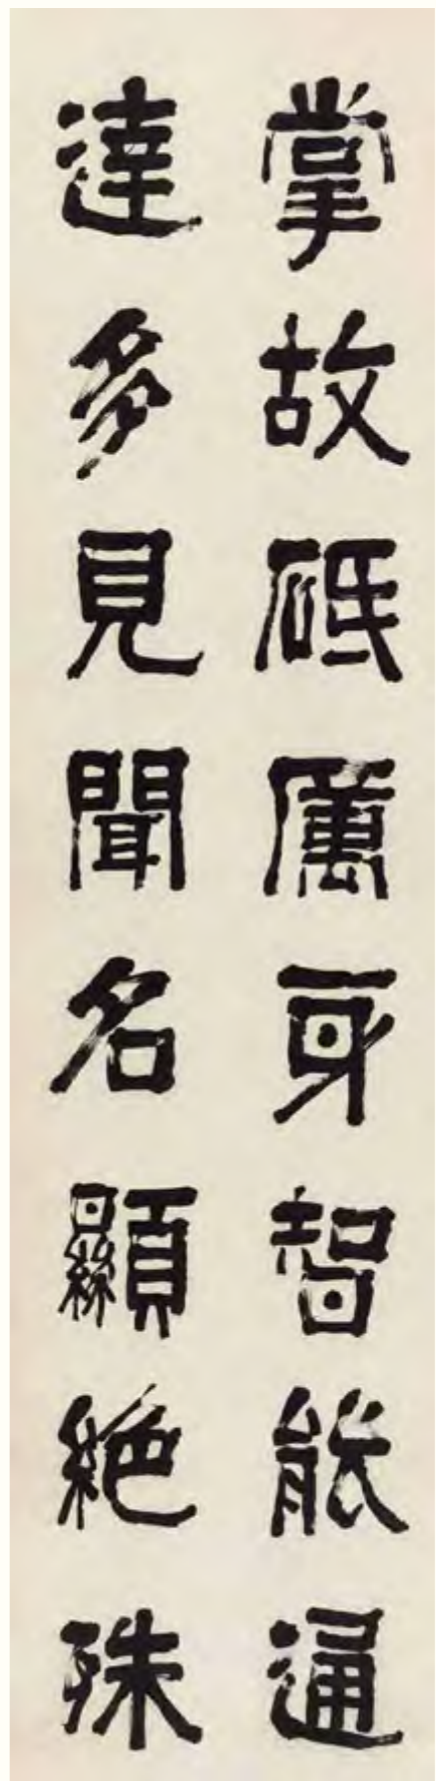 掌故砥厲身智能通
達多見聞名顯絶殊